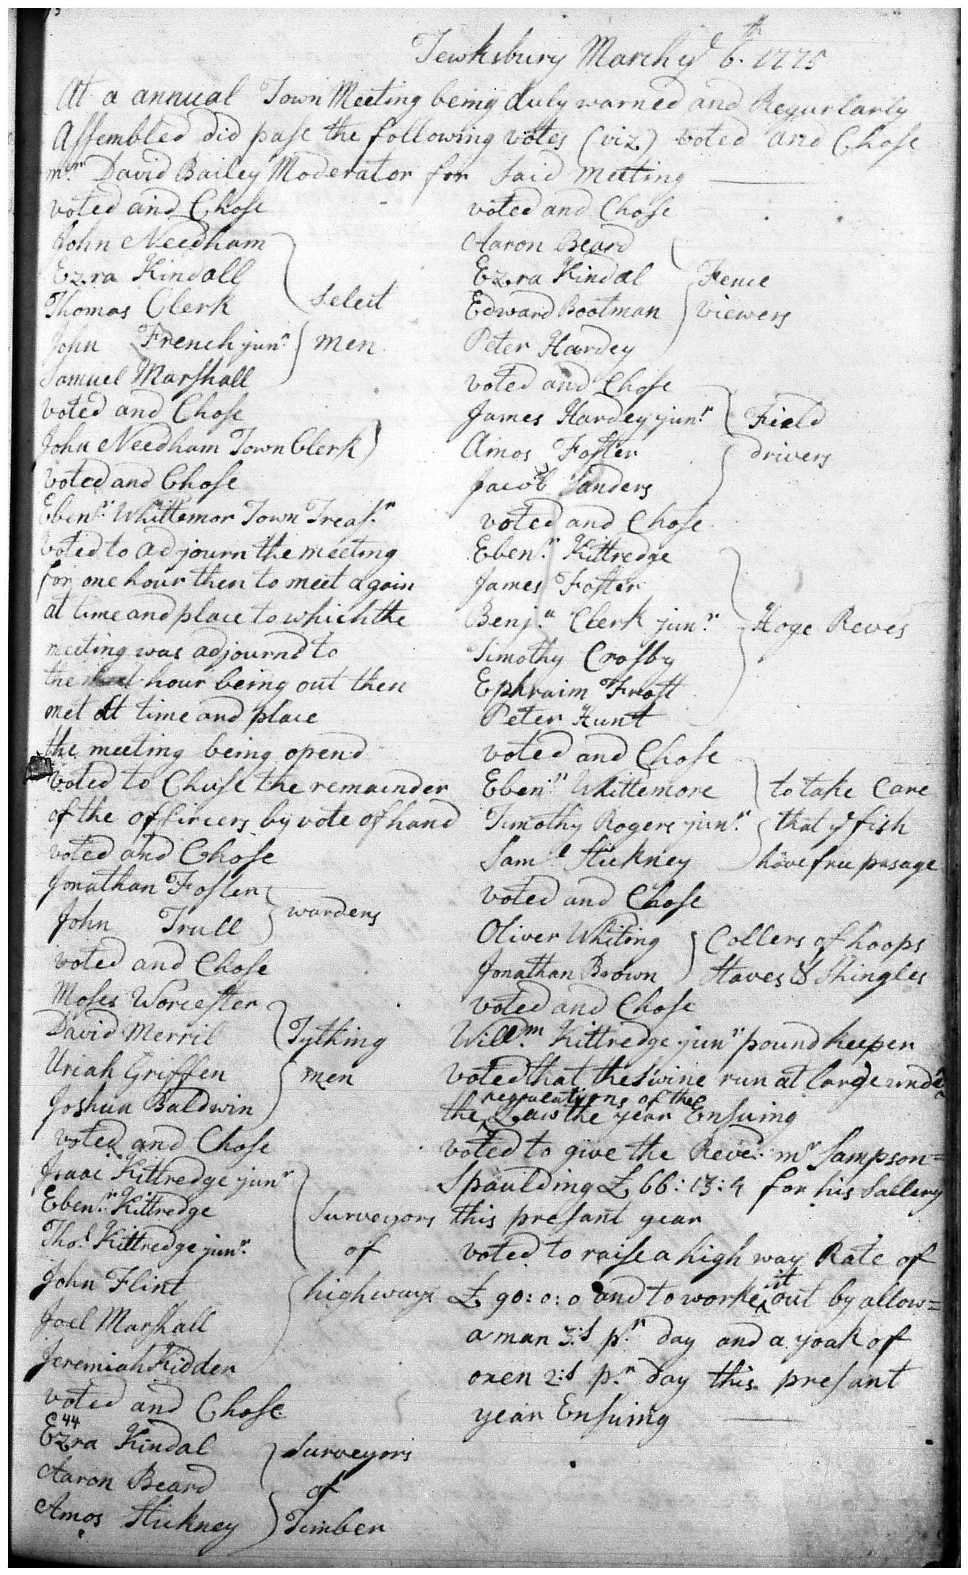 Tewksbury March ye 6th. 1775
At a annual Town Meeting being duly warned and Regurlarly
Assembled did pase the following votes (viz) voted and Chose
mr. David Bailey Moderator for said meeting
voted and Chose
John Needham
Ezra Kindall
Thomas Clerk
Select
John French junr.
men
Samuel Marshall
voted and Chose
John Needham Town Clerk
voted and Chose
Ebenr. Whittemor Town Treasr.
voted to adjourn the meeting
for one hour then to meet again
at time and place to which the
meeting was adjournd to
the hour being out then
met at time and place
the meeting being opend
voted to Chuse the remainder
of the officcers by vote of hand
voted and Chose
Jonathan Foster
John Trull
warders
voted and Chose
Moses Worcester
David Merril
Tything
Uriah Griffen
men
Joshua Baldwin
voted and Chose
Isaac Kittredge junr
Ebenr. Kittredge
Surveyors
Thos. Kittredge junr.
of
John Flint
highways
Joel Marshall
Jeremiah Kidder
voted and Chose
44
Ezra Kindal
Surveyors
Aaron Beard
of
Amos Stickney
Timber
voted and Chose
Aaron Beard
Ezra Kindal
Fence
Edward Bootman
viewers
Peter Hardey
voted and Chose
James Hardey junr.
Field
Amos Foster
drivers
Jacob Sanders
voted and Chose
Ebenr. Kittredge
James Foster
Benja. Clerk junr.
Hoge Reves
Timothy Crosby
Ephraim Frost
Peter Hunt
voted and Chose
Ebenr. Whittemore
to take Care
Timothy Rogers junr.
that ye fish
Saml. Stickney
have free pasage
voted and Chose
Oliver Whiting
Collers of hoops
Jonathan Brown
Staves & Shingles
voted and Chose
Willm. Kittredge junr pound keeper
voted that the swine run at large under
regulations of the
the Law the year Ensuing
voted to give the Reved. mr Sampson=
Spaulding £ 66:13:4 for his Sallery
this presant year
voted to raise a high way Rate of
£ 90:0:0 and to worke it out by allow=
a man 3:s pr. day and a yoak of
oxen 2:s pr. day this presant
year Ensuing